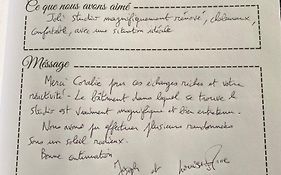 Ce que nous avons aimé
Joli studio magnifiquement rénové, chaleureux,
confortable, avec une situation idéale
Message
Merci Coralie pour ces échanges riches et votre
réactivité. Le bâtiment dans lequel se trouve le
studio est vraiment magnifique et bien entretenu.
Nous avons pu effectuer plusieurs randonnées
sous un soleil radieux.
Bonne continuation
Joseph et